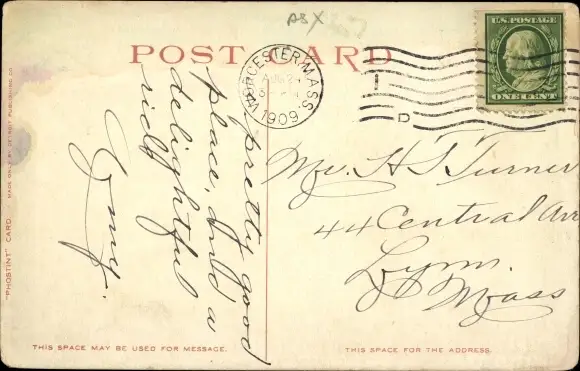 POST CARD
WORCESTER, MASS.
1909
U.S. POSTAGE
ONE CENT
D
pretty good
place, and a
delightful
ride
Mr. H S Turner
44 Central Ave
Lynn
Mass
"PHOSTINT" CARD
MADE ONLY BY DETROIT PUBLISHING CO.
THIS SPACE MAY BE USED FOR MESSAGE.
THIS SPACE FOR THE ADDRESS.